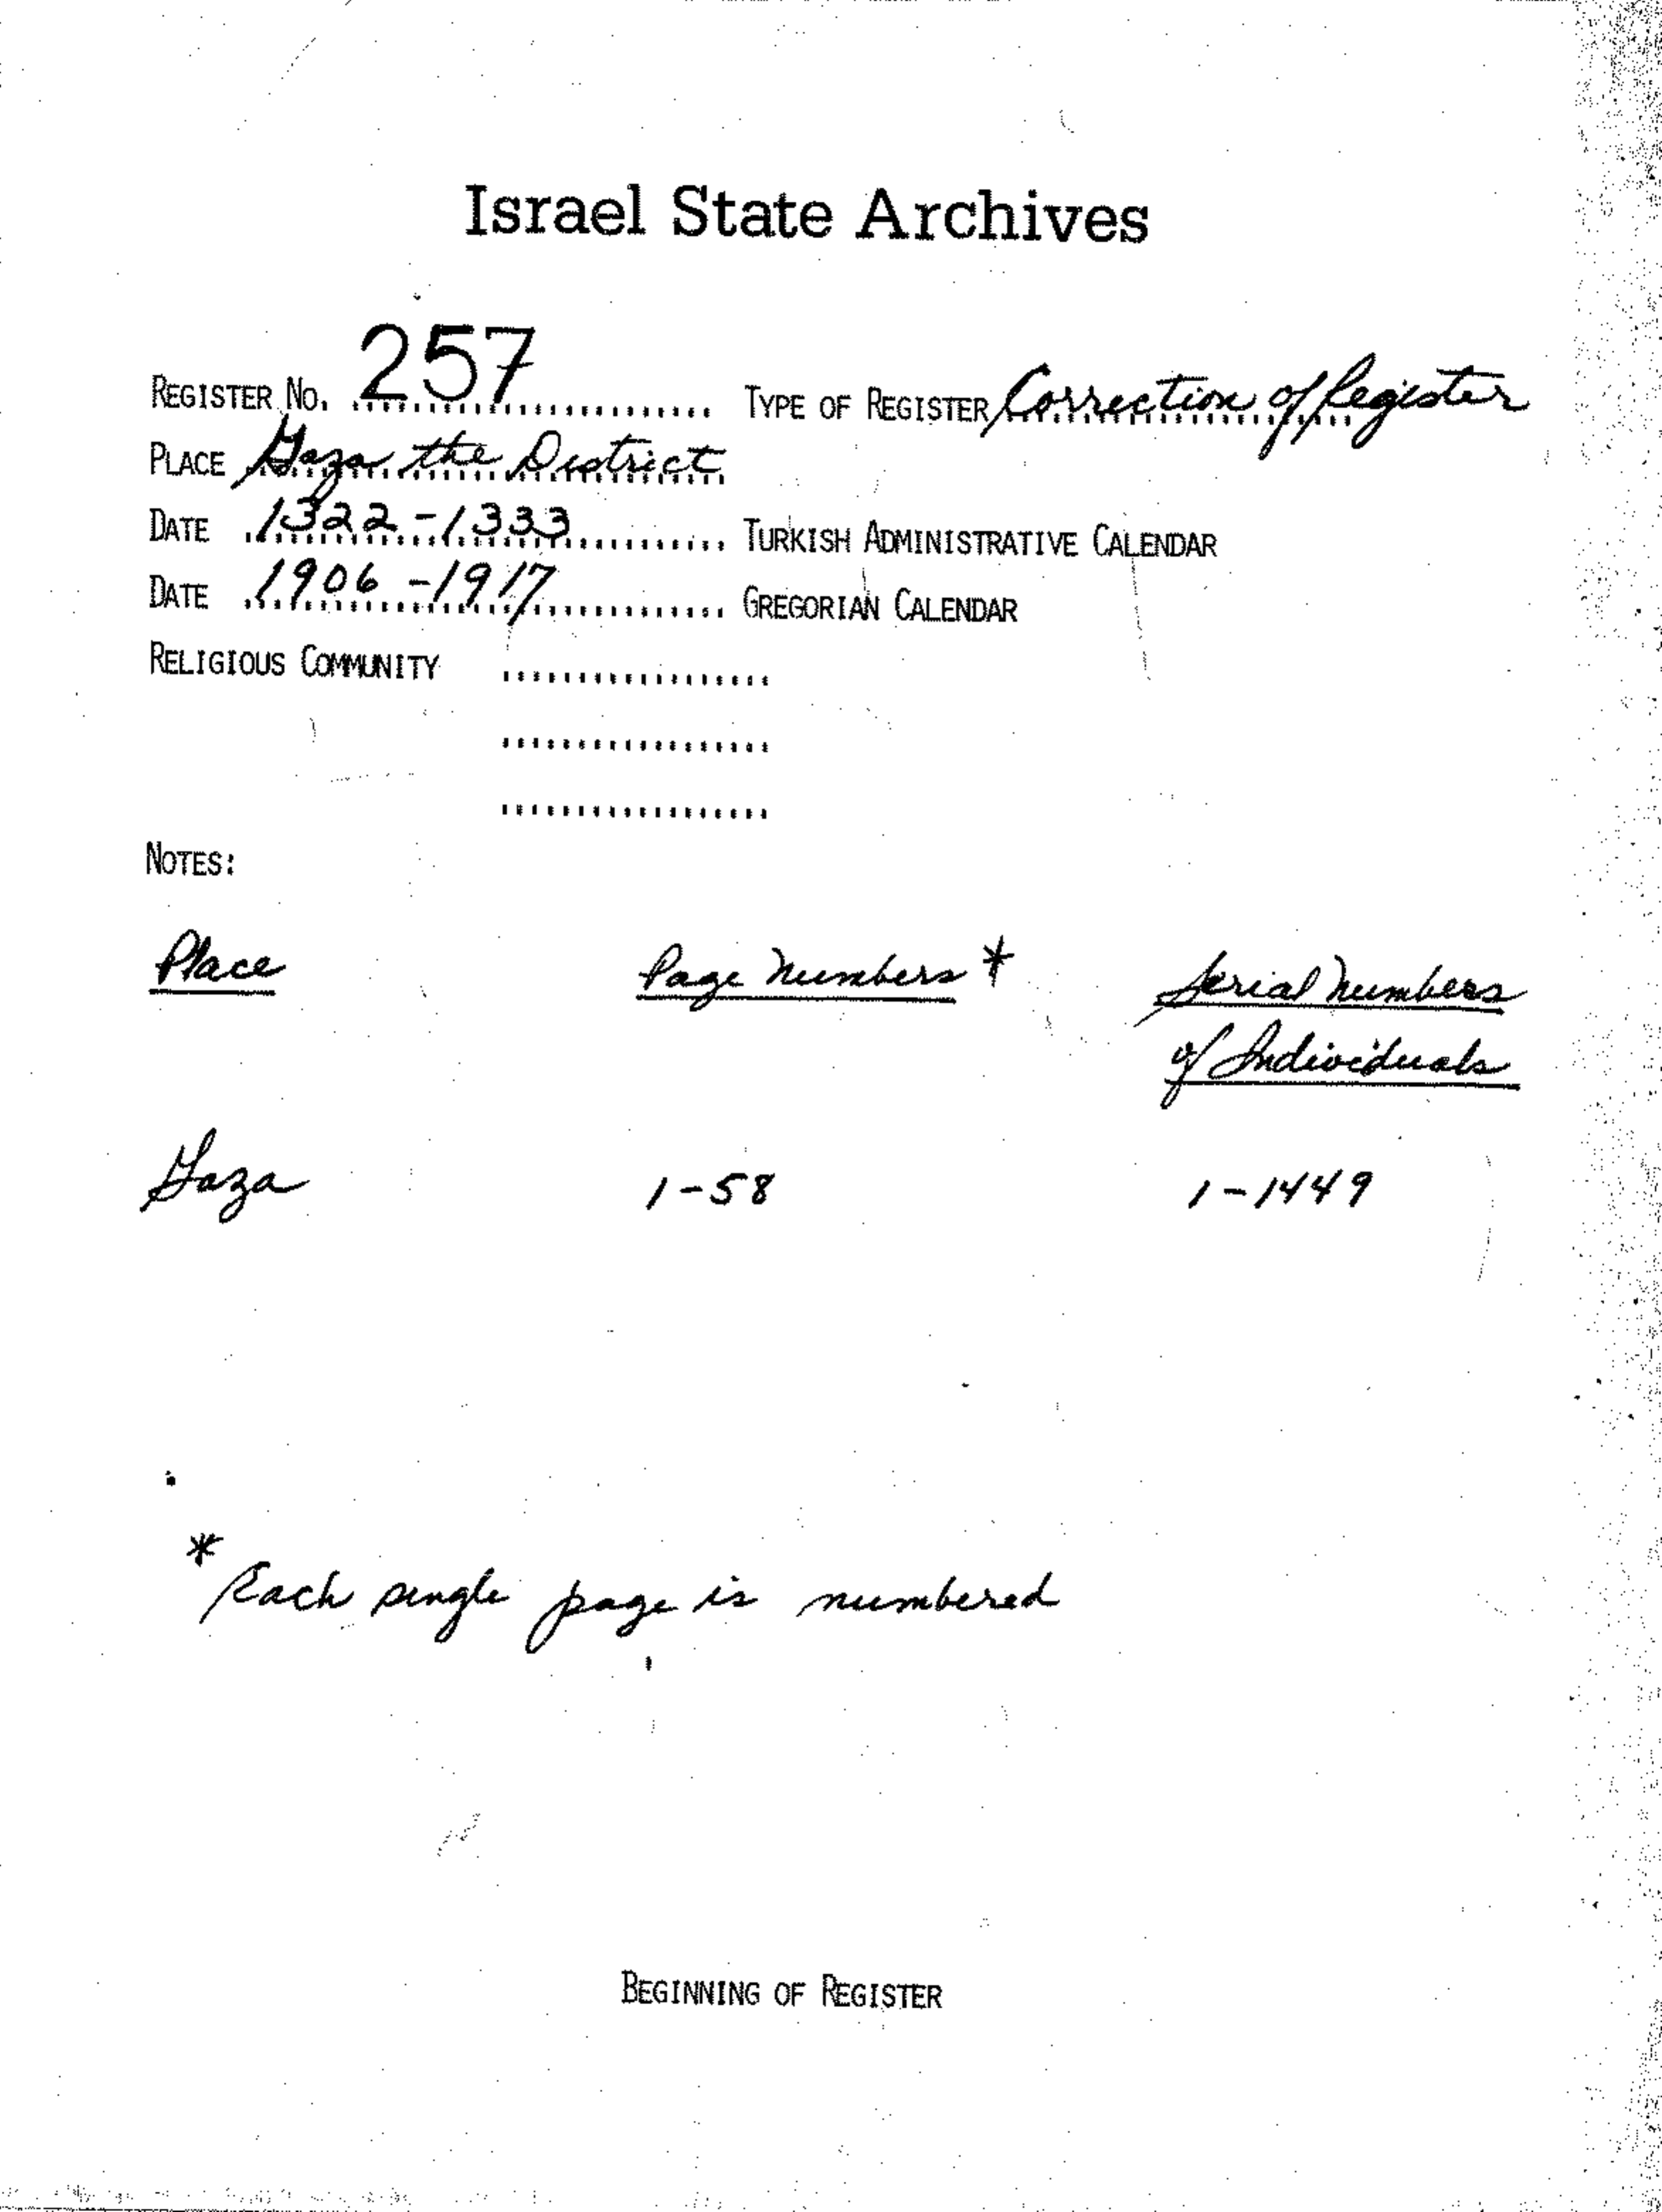 Israel State Archives
REGISTER NO. 257 TYPE OF REGISTER Correction of Register
PLACE Gaza the District
DATE 1322-1333 TURKISH ADMINISTRATIVE CALENDAR
DATE 1906-1917 GREGORIAN CALENDAR
RELIGIOUS COMMUNITY
NOTES:
Place Page Numbers * Serial Numbers
of Individuals
Gaza 1-58 1-1449
* Each single page is numbered
BEGINNING OF REGISTER